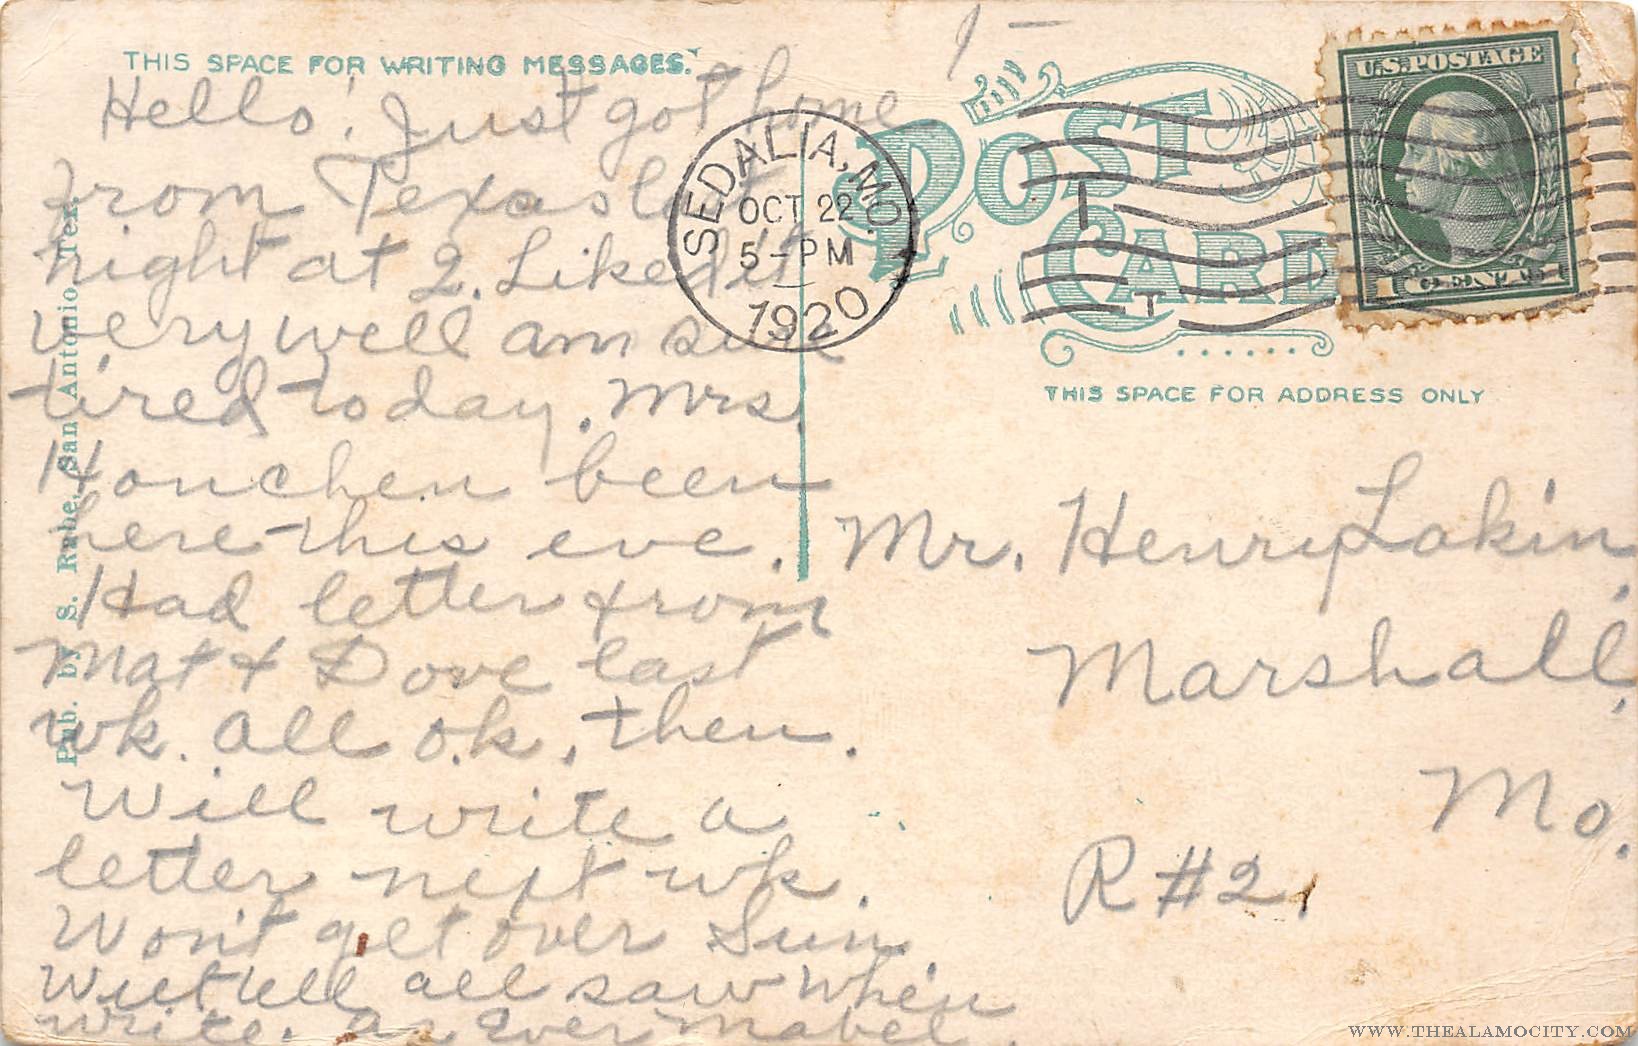 THIS SPACE FOR WRITING MESSAGES.
Hello! Just got home
from Texas last
night at 2. Liked it
very well am sure
tired today. Mrs.
Honchen been
here this eve.
Had letter from
Mat & Dove last
wk. all o.k. then.
Will write a
letter next wk.
Won't get over Sun.
Will tell all saw when
write. As Ever Mabel.
Pub. by S. Rabe, San Antonio Tex.
1 -
POST CARD
SEDALIA, MO.
OCT 22
5 - PM
1920
U.S. POSTAGE
1 CENT 1
THIS SPACE FOR ADDRESS ONLY
Mr. Henry Lakin,
Marshall,
Mo.
R #2.
WWW.THEALAMOCITY.COM